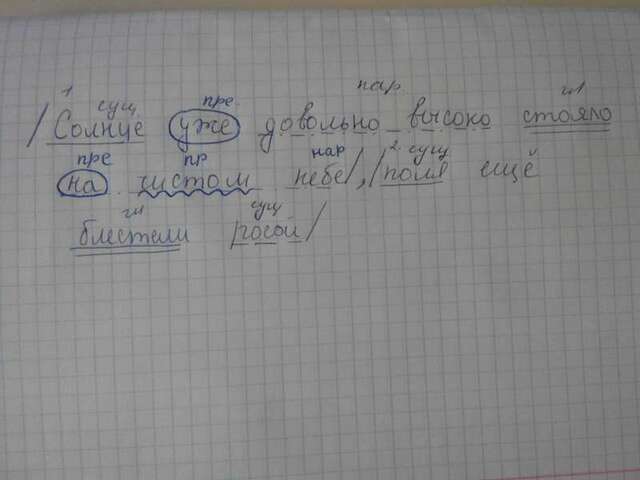 1 сущ пре. нар. гл
/Солнце уже довольно высоко стояло
пре пр нар 2 сущ
на чистом небе/,/поля ещё
гл сущ
блестели росой/